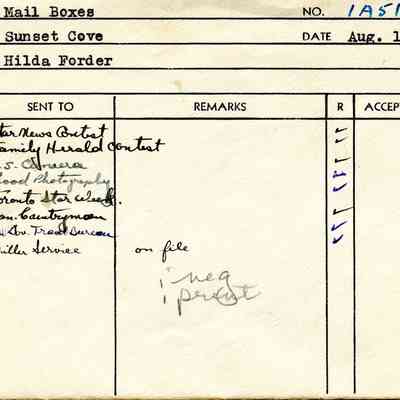 Mail Boxes NO. 1A51
Sunset Cove DATE Aug. 1
Hilda Forder
SENT TO REMARKS R ACCEP
tar News Contest
Family Herald Contest
.S. Camera
Good Photography
Toronto Star Week.
an. Countryman
Gov. Travel Bureau
iller Service on file
1 neg
1 print